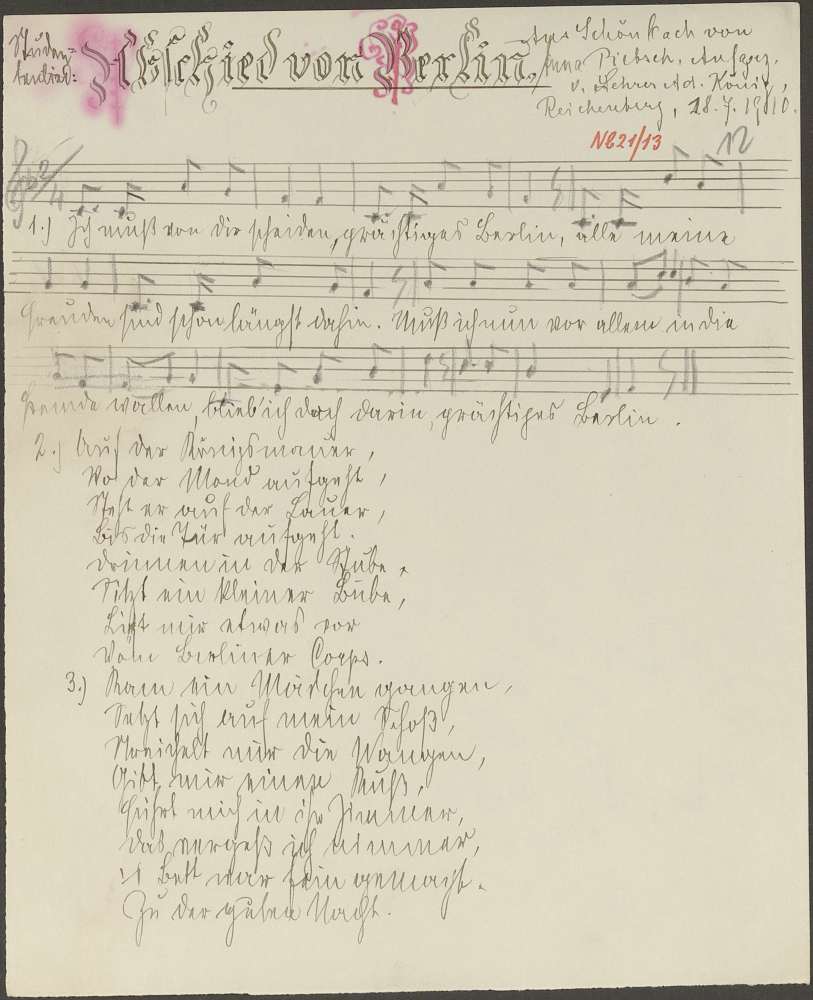 Studen=
tenlied:
Abschied von Berlin.
Aus Schönbach von
Anna Pietsch. Aufgez.
v. Lehrer Ad. König,
Reichenberg, 28.7.1910.
NB 21/13
12
2/4
1.) Ich muß von dir scheiden, prächtiges Berlin, alle meine
Freuden sind schon längst dahin. Muß ich nun vor allem in die
Fremde wallen, blieb' ich doch darin, prächtiges Berlin.
2.) Auf der Königsmauer,
Wo der Mond aufgeht,
Steht er auf der Lauer,
Bis die Tür aufgeht.
Drinnen in der Stube,
Sitzt ein kleiner Bube,
Liest mir etwas vor
Vom Berliner Corps.
3.) Kam ein Mädchen gangen,
Setzt sich auf mein Schoß,
Streichelt mir die Wangen,
Gibt mir einen Kuß,
Führt mich in ihr Zimmer,
Das vergeß ich nimmer,
's Bett war fein gemacht.
Zu der guten Nacht.